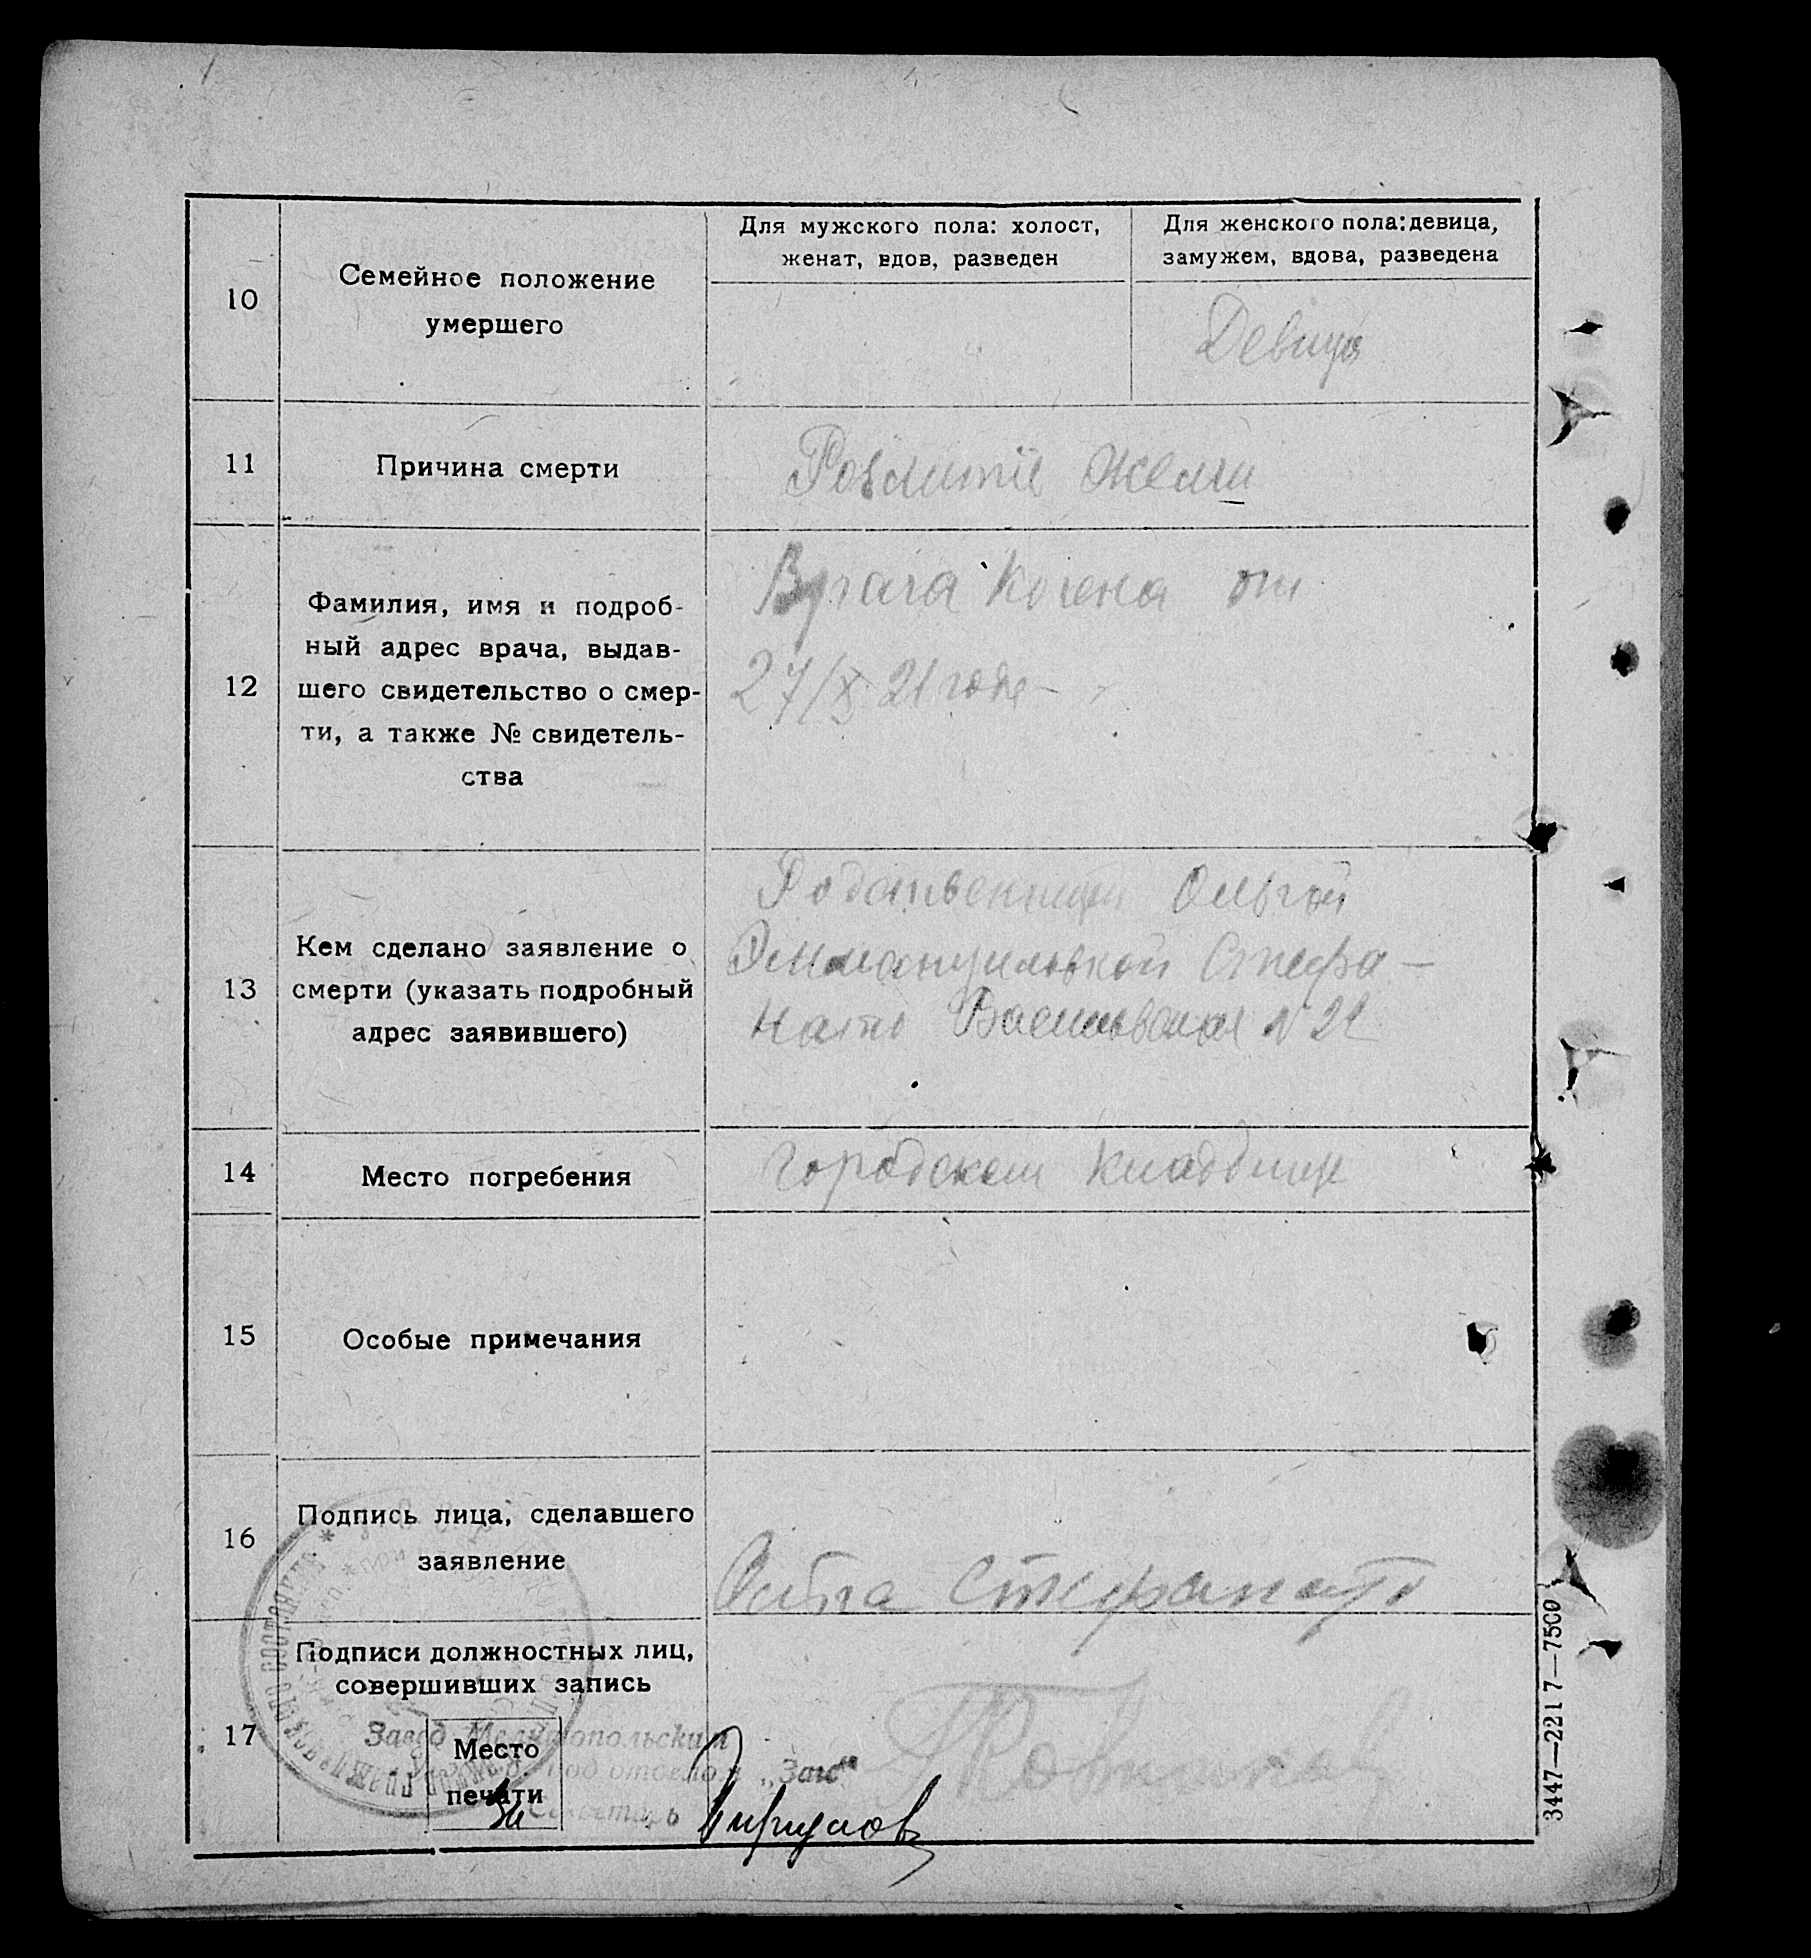 10
Семейное положение
умершего
Для мужского пола: холост,
женат, вдов, разведен
Для женского пола: девица,
замужем, вдова, разведена
Девица
11
Причина смерти
Розлитие Желчи
12
Фамилия, имя и подроб-
ный адрес врача, выдав-
шего свидетельство о смер-
ти, а также № свидетель-
ства
Врача Когена от
27/X 21 года
13
Кем сделано заявление о
смерти (указать подробный
адрес заявившего)
Ольгой
Эммануиловной Стефа-
нато Васильевская N 21
14
Место погребения
Городском кладбище
15
Особые примечания
16
Подпись лица, сделавшего
заявление
Ольга Стефанато
17
Подписи должностных лиц,
совершивших запись
Завед. Мелитопольским
под отделом „Загс"
Секретарь
Место
печати
За
3447—2217—7500